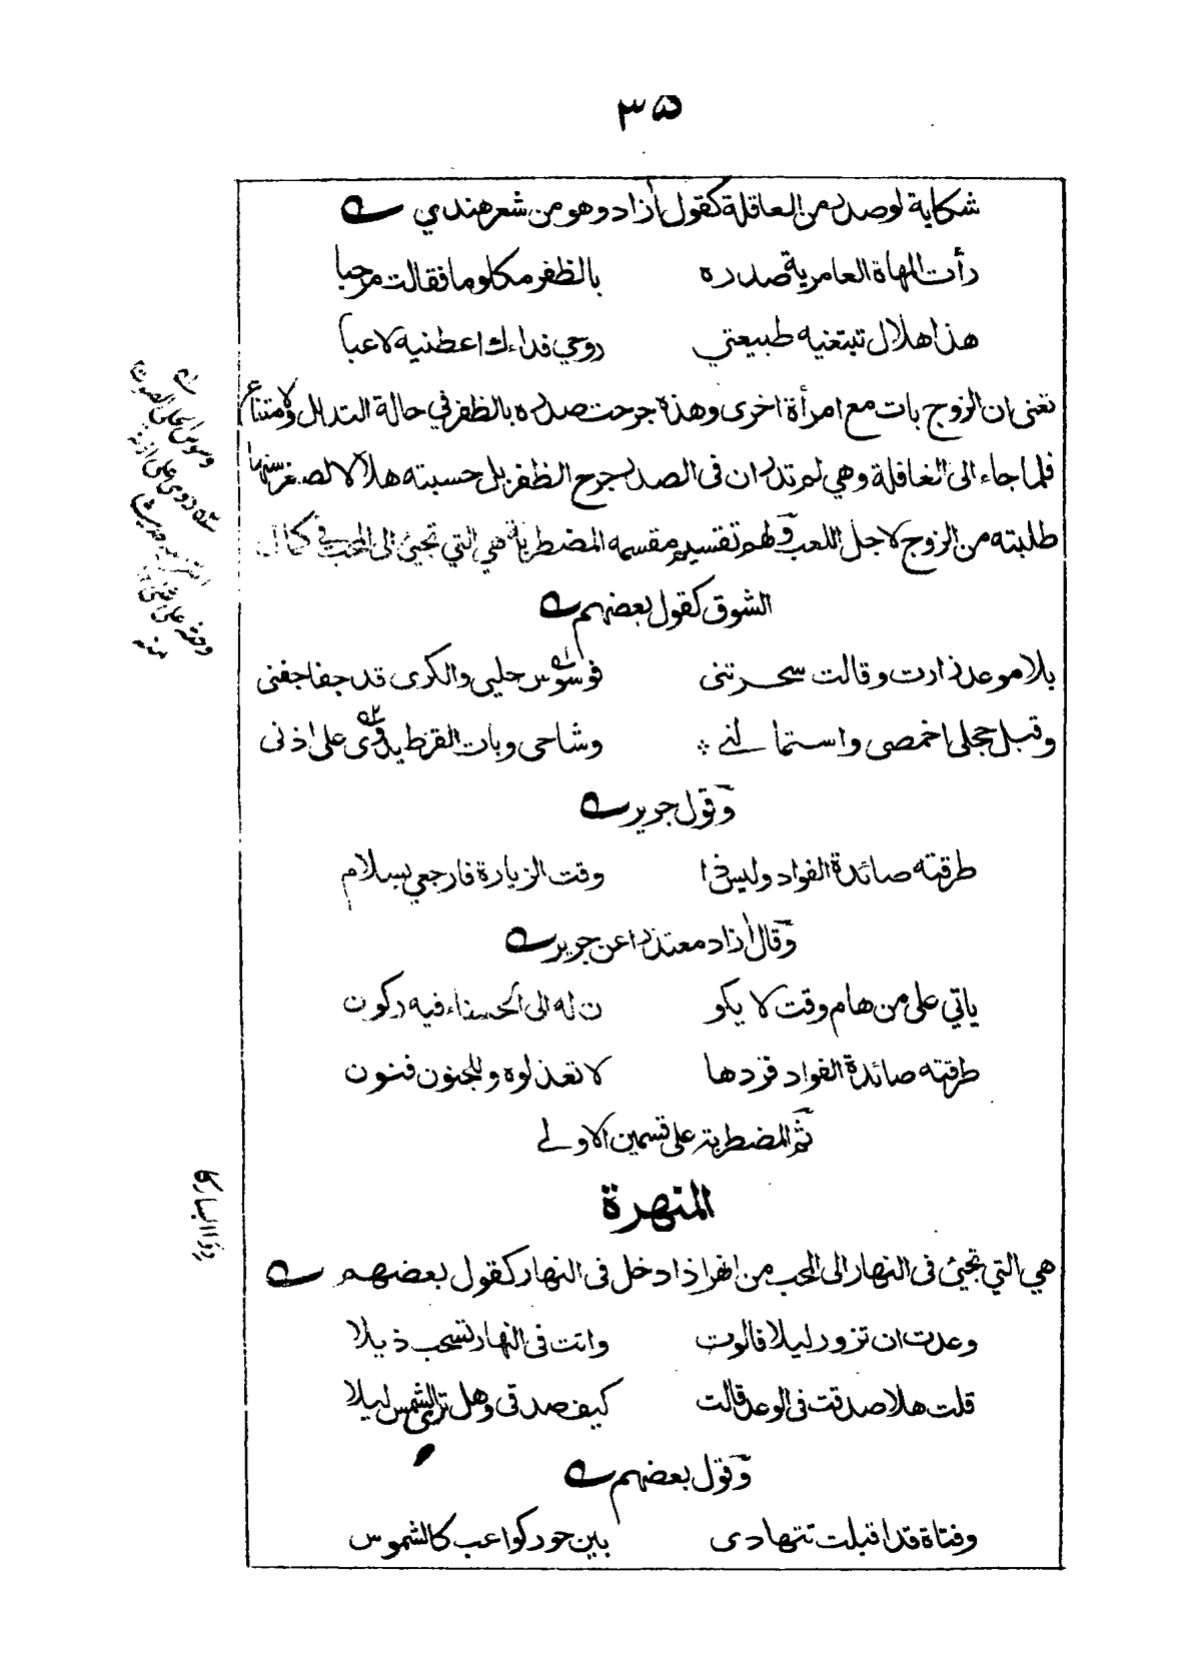 ۳۵
شكاية لو صدر من العاقلة كقول أزاد وهو من شعر هندي
رأت المهاة العامرية صدره بالظفر مكلوما فقالت مرحبا
هذا هلال تبتغيه طبيعتي روحي فداءك اعطنيه لاعبا
تعنى ان الزوج بات مع امرأة اخرى وهذه جرحت صدره بالظفر في حالة التدلل والامتناع
فلما جاء الى الغافلة وهي لم تدر ان فى الصدر جرح الظفر بل حسبته هلالا لصغر سنها
طلبته من الزوج لاجل اللعب ولهم تقسيم مقسمه المضطربة هي التي تجيئ الى المحب في كمال
الشوق كقول بعضهم
بلا موعد زارت وقالت سحرتنى فوسوس حليى والكرى قد جفا جفنى
وقبل حجلى اخمصى واستمالني وشاحى وبات القرط يدوى على اذنى
وقول جرير
طرقته صائدة الفواد وليس ذا وقت الزيارة فارجعي بسلام
وقال أزاد معتذرا عن جرير
ياتي على من هام وقت لا يكو ن له الى الحسناء فيه ركون
طرقته صائدة الفواد فردها لا تعذلوه وللجنون فنون
ثم المضطربة على قسمين الاولے
المنهرة
هي التي تجيئ فى النهار الى المحب من انهر اذا دخل فى النهار كقول بعضهم
وعدت ان تزور ليلا فالوت واتت فى النهار تسحب ذيلا
قلت هلا صدقت فى الوعد قالت كيف صدقى وهل ترى الشمس ليلا
وقول بعضهم
وفتاة قد اقبلت تتهادى بين حور كواعب كالشموس